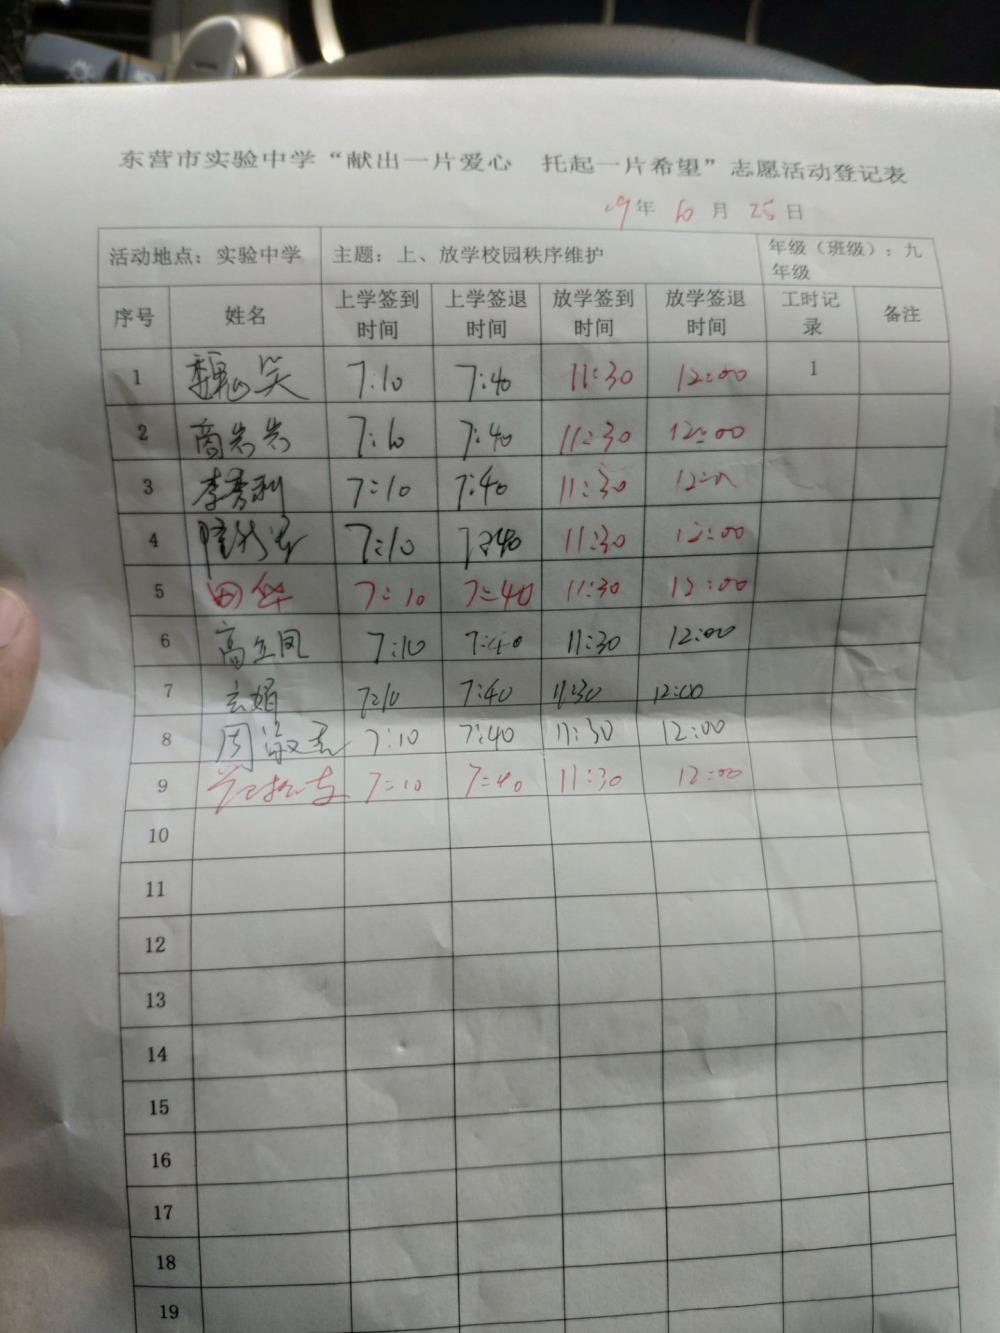 东营市实验中学“献出一片爱心 托起一片希望”志愿活动登记表
19年 10月 25日
活动地点：实验中学 主题：上、放学校园秩序维护 年级（班级）：九年级
序号 姓名 上学签到时间 上学签退时间 放学签到时间 放学签退时间 工时记录 备注
1 魏笑 7:10 7:40 11:30 12:00 1
2 商岩岩 7:10 7:40 11:30 12:00
3 李秀利 7:10 7:40 11:30
4 7:10 7:40 11:30 12:00
5 田华 7:10 7:40 11:30 12:00
6 高立凤 7:10 7:40 11:30 12:00
7 玄娟 7:10 7:40 11:30 12:00
8 7:10 7:40 11:30 12:00
9 7:10 7:40 11:30 12:00
10
11
12
13
14
15
16
17
18
19